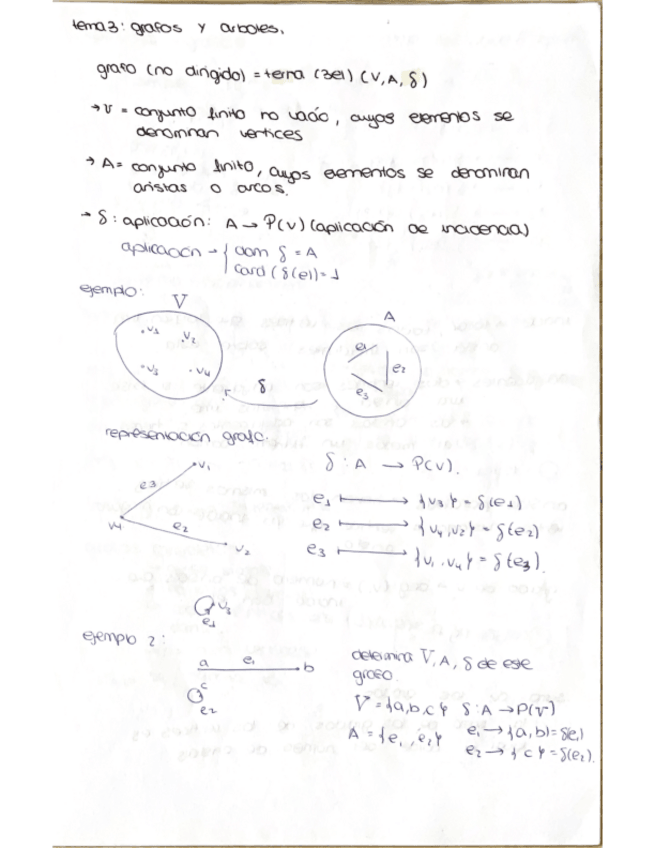 tema 3: grafos y arboles.
grafo (no dirigido) = terna (3el) (V, A, δ)
→ V = conjunto finito no vacío, cuyos elementos se
denominan vertices
→ A = conjunto finito, cuyos elementos se denominan
aristas o arcos.
→ δ: aplicación: A → P(V) (aplicación de incidencia)
aplicación → { dom δ = A
card (δ(e)) = 1
ejemplo:
V
A
.v3 .v2
.v5 .v4
e1
e2
e3
δ
representación grafo:
δ : A → P(V).
v1
e3
v4
e2
v2
e1 ↦ {v3} = δ(e1)
e2 ↦ {v4, v2} = δ(e2)
e3 ↦ {v1, v4} = δ(e3).
v3
e1
ejemplo 2:
a e1 b
c
e2
determina V, A, δ de este
grafo.
V = {a, b, c} δ: A → P(V)
A = {e1, e2} e1 → {a, b} = δ(e1)
e2 → {c} = δ(e2).